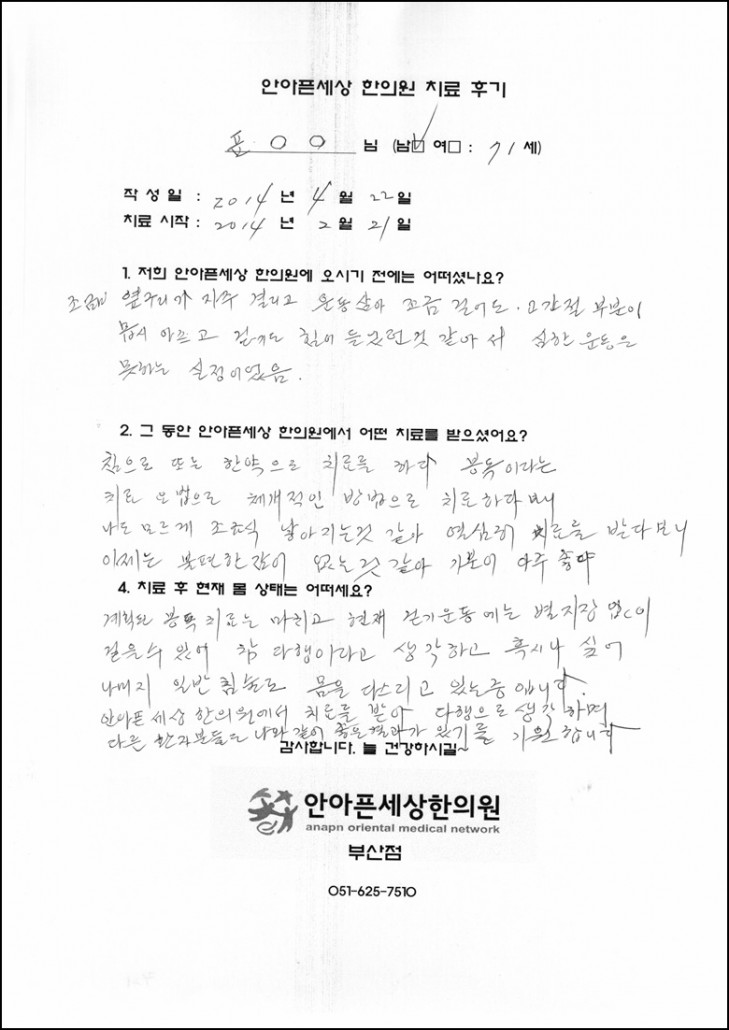 안아픈세상 한의원 치료 후기
표 O O 님 (남☑ 여□ : 71 세)
작 성 일 : 2014 년 4 월 22 일
치료 시작 : 2014 년 2 월 21 일
1. 저희 안아픈세상 한의원에 오시기 전에는 어떠셨나요?
옆구리가 자주 결리고 운동삼아 조금 걸어도. 고관절 부분이
무시 아프고 걷기도 힘이 들었던것 같아서 심한 운동은
못하는 실정이었음.
2. 그 동안 안아픈세상 한의원에서 어떤 치료를 받으셨어요?
침으로 또는 한약으로 치료를 하다 봉독이라는
치료 요법으로 체계적인 방법으로 치료하다 보니
나도 모르게 조금식 낳아지는것 같아 열심히 치료를 받다보니
이제는 불편한점이 없는것 같아 기분이 아주 좋아
4. 치료 후 현재 몸 상태는 어떠세요?
계획된 봉독 치료는 마치고 현재 걷기운동에는 별지장 없이
걸을수 있어 참 다행이라고 생각하고 혹시나 싶어
나머지 일반 침술로 몸을 다스리고 있는중입니다.
안아픈세상 한의원에서 치료를 받아 다행으로 생각하며
다른 환자분들도 나와 같이 좋은결과가 있기를 기원합니다
감사합니다. 늘 건강하시길~
안아픈세상한의원
anapn oriental medical network
부산점
051-625-7510